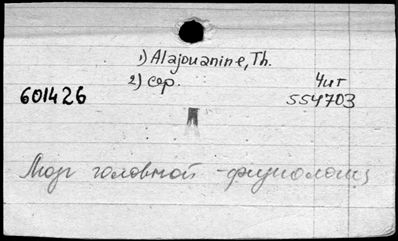 1) Alajouanine, Th.
2) сер.
Чит
601426
554703
Мозг головной - физиология